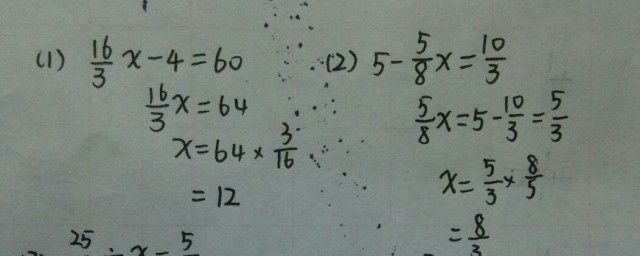 (1) 16/3 x - 4 = 60
16/3 x = 64
x = 64 × 3/16
= 12
(2) 5 - 5/8 x = 10/3
5/8 x = 5 - 10/3 = 5/3
x = 5/3 × 8/5
= 8/3
25 ÷ x = 5